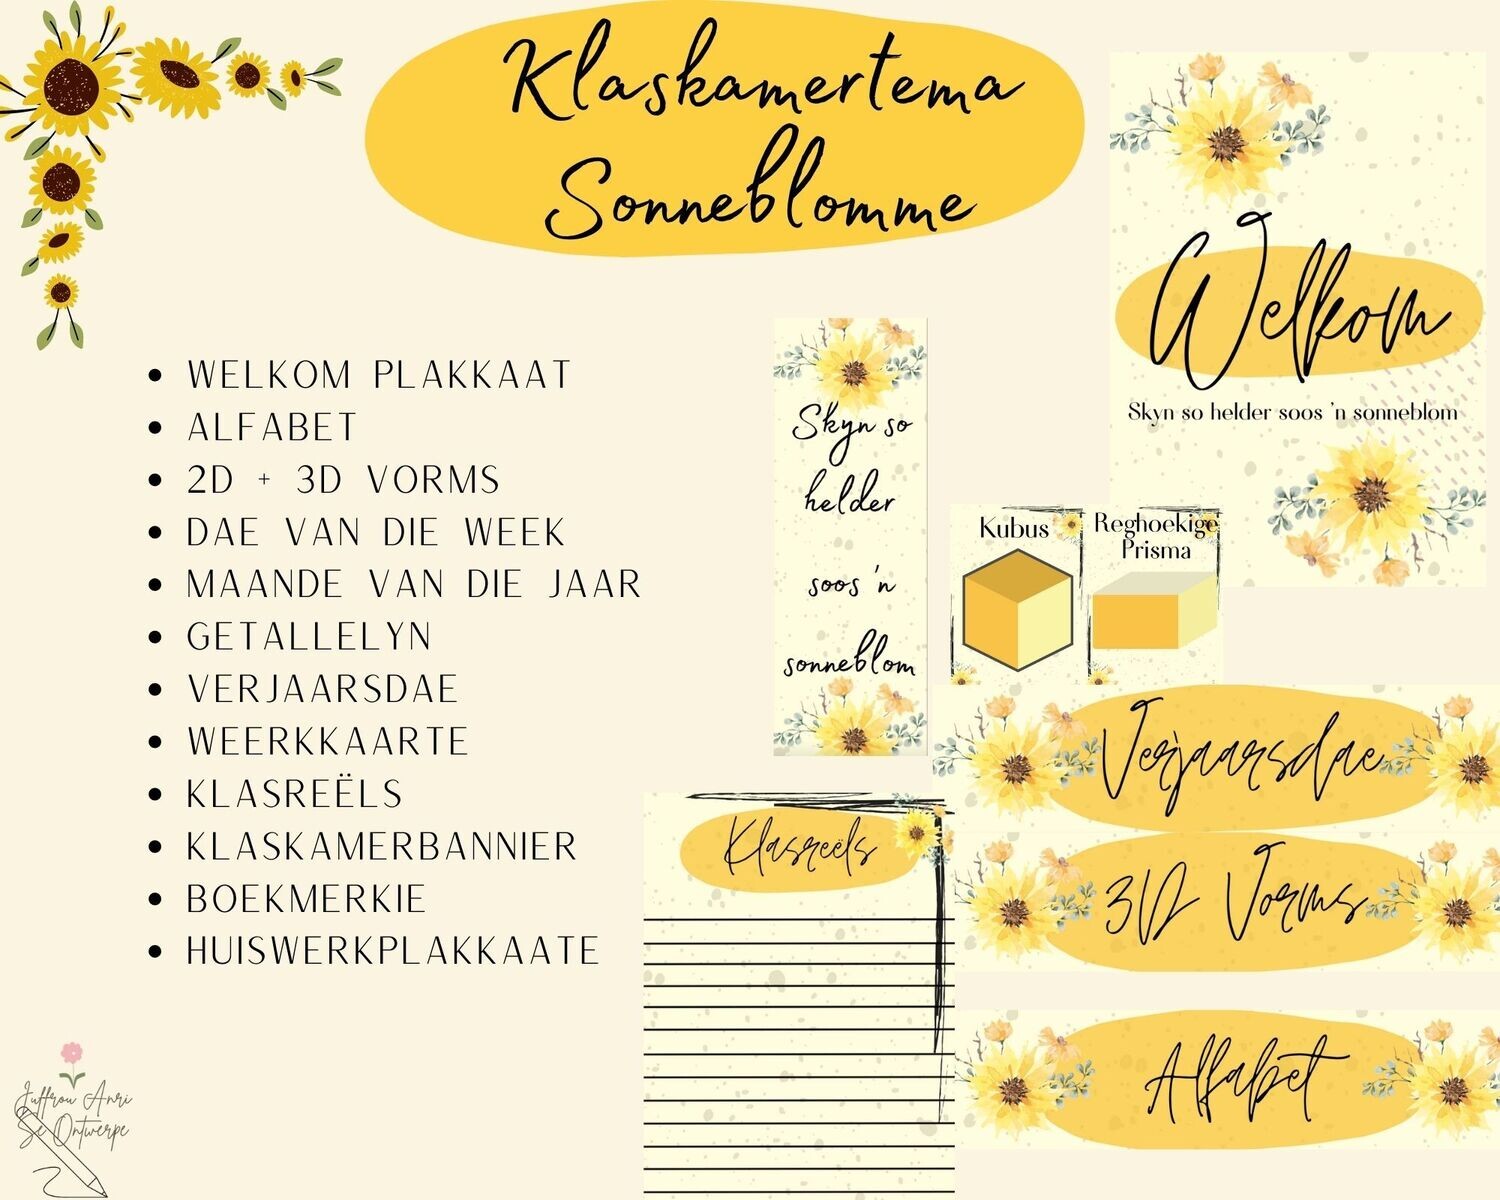 Klaskamertema
Sonneblomme
WELKOM PLAKKAAT
ALFABET
2D + 3D VORMS
DAE VAN DIE WEEK
MAANDE VAN DIE JAAR
GETALLELYN
VERJAARSDAE
WEERKKAARTE
KLASREËLS
KLASKAMERBANNIER
BOEKMERKIE
HUISWERKPLAKKAATE
Welkom
Skyn so helder soos 'n sonneblom
Skyn so
helder
soos 'n
sonneblom
Kubus
Reghoekige
Prisma
Verjaarsdae
3D Vorms
Alfabet
Klasreëls
Juffrou Anri
Se Ontwerpe